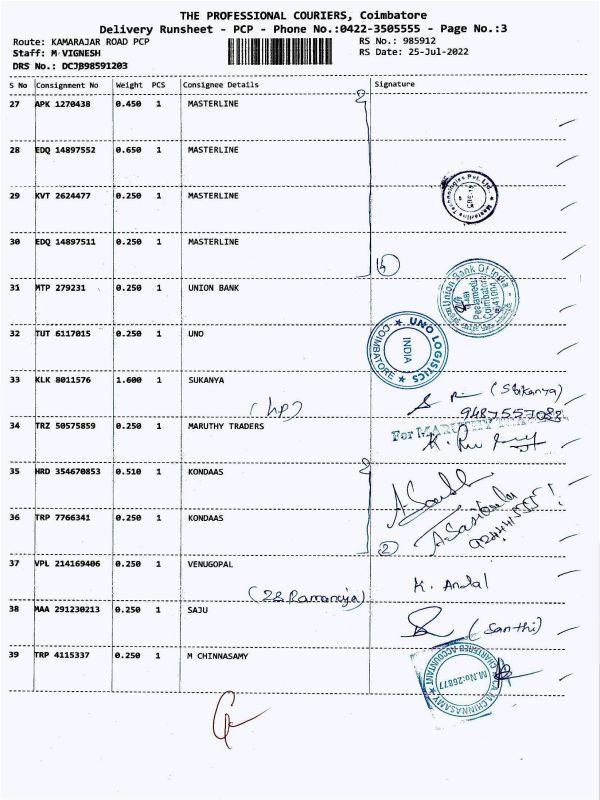 THE PROFESSIONAL COURIERS, Coimbatore
Delivery Runsheet - PCP - Phone No.:0422-3505555 - Page No.:3
Route: KAMARAJAR ROAD PCP RS No.: 985912
Staff: M VIGNESH RS Date: 25-Jul-2022
DRS No.: DCJB98591203
S No Consignment No Weight PCS Consignee Details Signature
27 APK 1270438 0.450 1 MASTERLINE
28 EDQ 14897552 0.650 1 MASTERLINE
29 KVT 2624477 0.250 1 MASTERLINE
Masterline Technologies Pvt. Ltd.
30 EDQ 14897511 0.250 1 MASTERLINE
4
31 MTP 279231 0.250 1 UNION BANK
Union Bank Of India
Peelamedu
Coimbatore
641004
32 TUT 6117015 0.250 1 UNO
UNO LOGISTICS
COIMBATORE
INDIA
33 KLK 8011576 1.600 1 SUKANYA
(Sukanya)
9487557088
34 TRZ 50575859 0.250 1 MARUTHY TRADERS
For MARUTHY
35 HRD 354670853 0.510 1 KONDAAS
36 TRP 7766341 0.250 1 KONDAAS
2
37 VPL 214169406 0.250 1 VENUGOPAL
K. Andal
38 MAA 291230213 0.250 1 SAJU
(Santhi)
39 TRP 4115337 0.250 1 M CHINNASAMY
CA M CHINNASAMY
CHARTERED ACCOUNTANT
M.No:26877